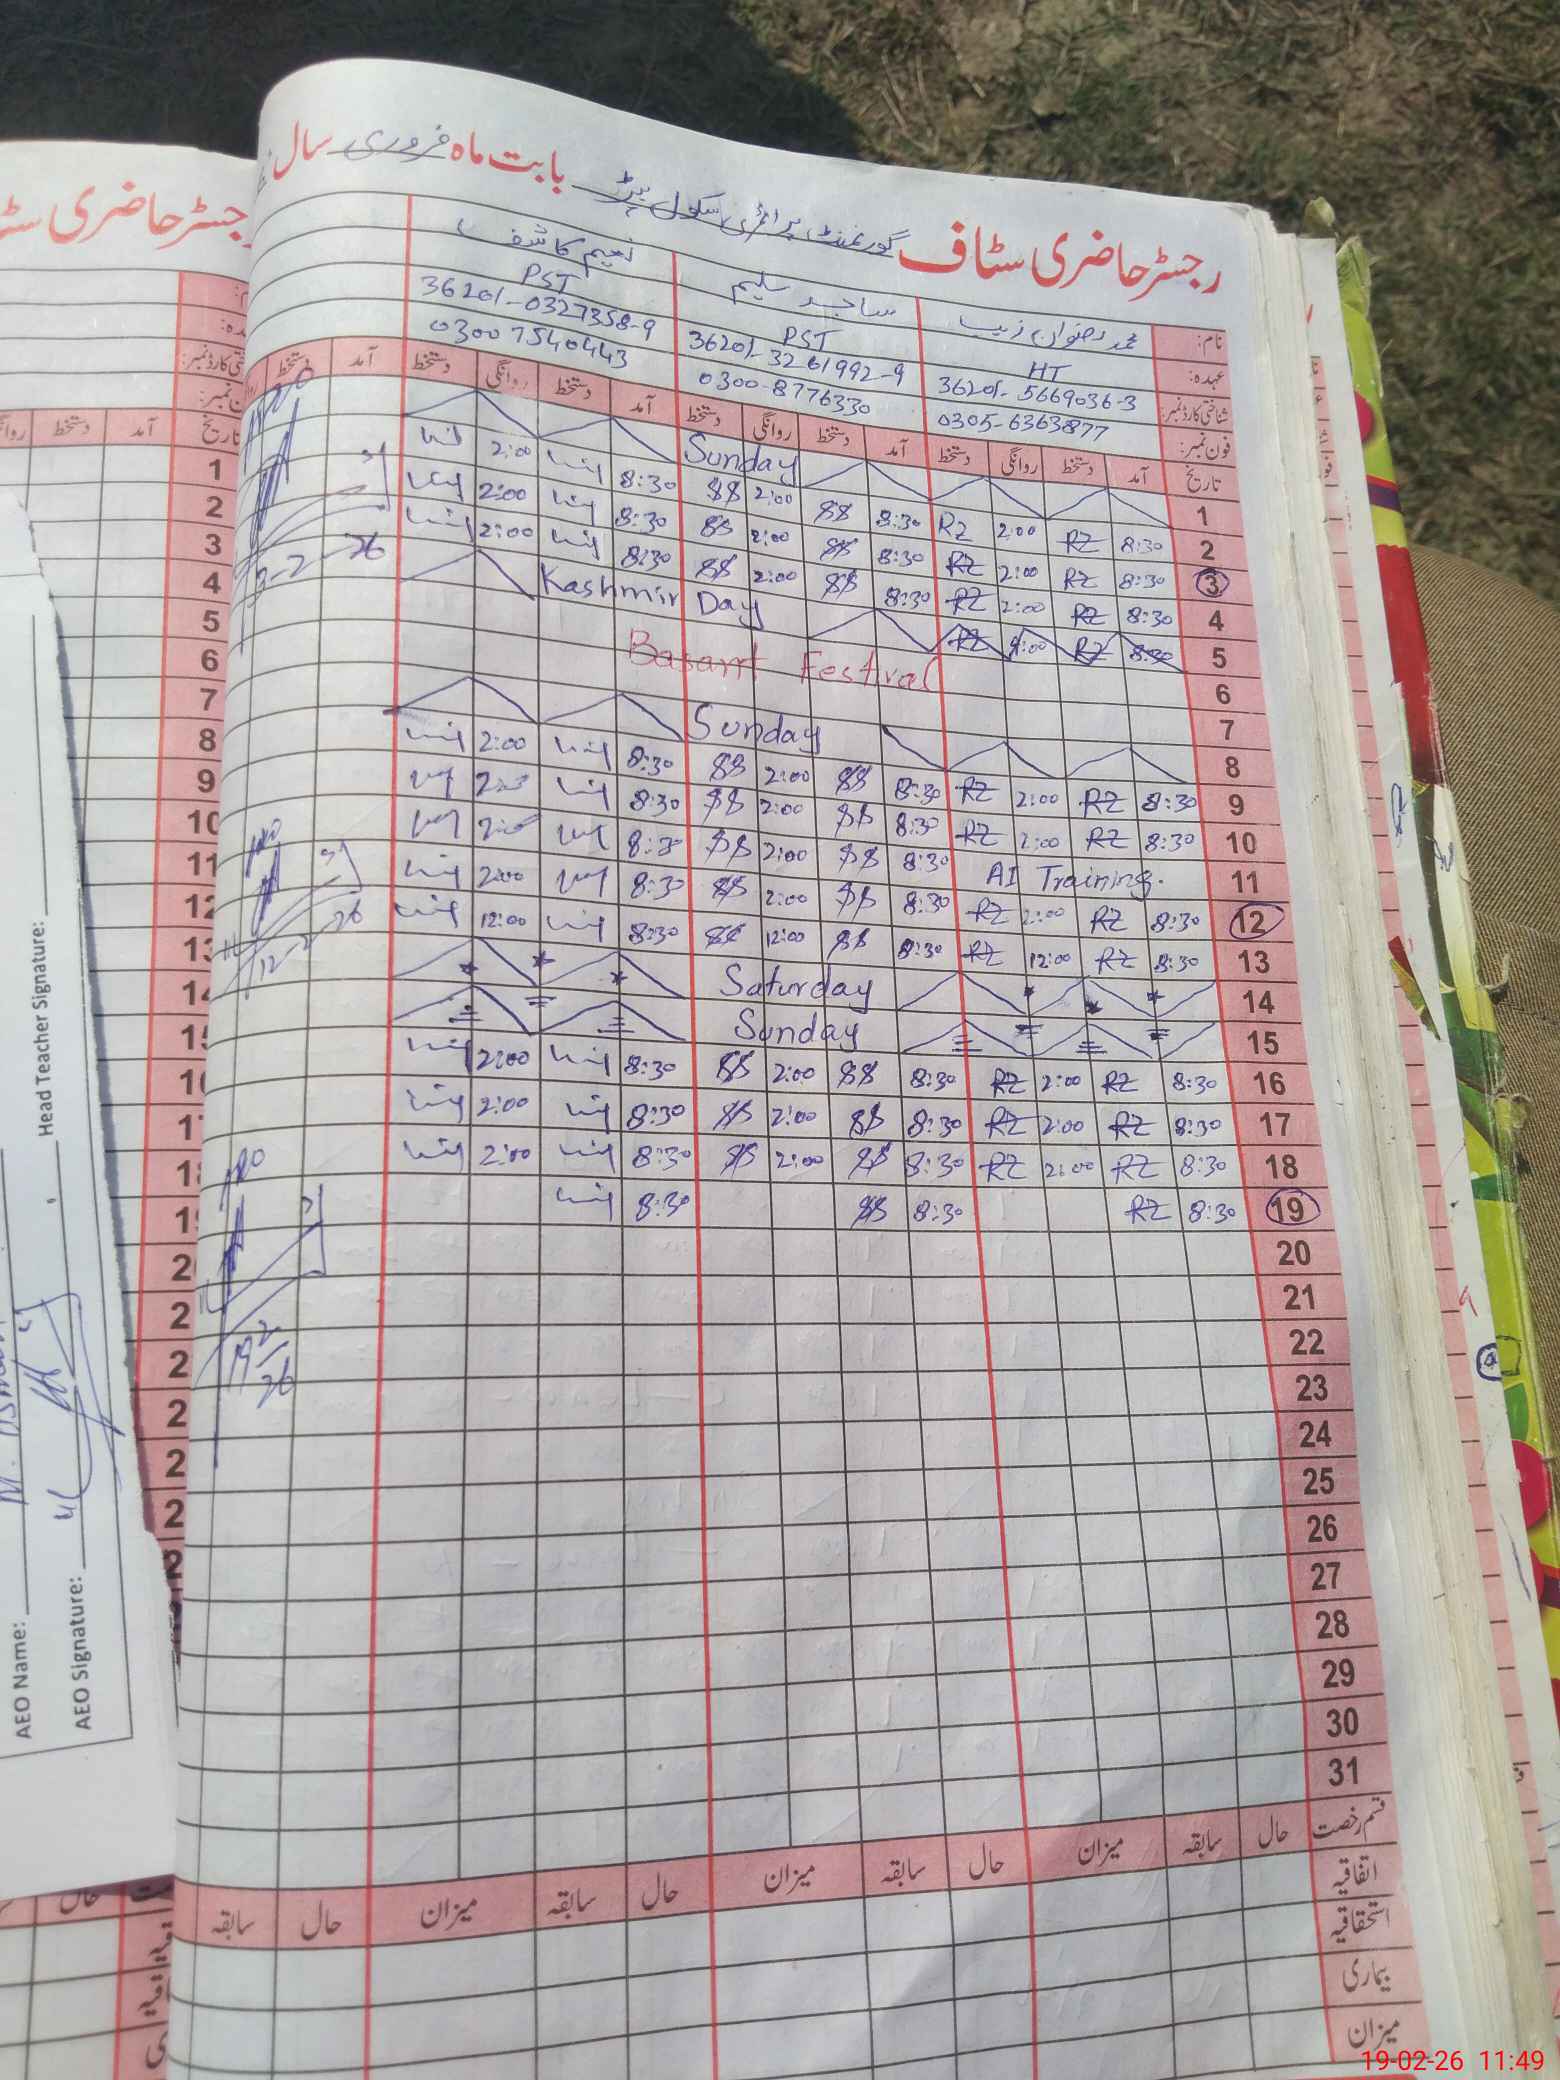 رجسٹر حاضری سٹاف گورنمنٹ پرائمری سکول بابت ماہ فروری سال
نام: محمد رضوان زیب ساجد سلیم نعیم کاشف
عہدہ: HT PST PST
شناختی کارڈ نمبر: 36201-5669036-3 36201-3261992-9 36201-0327358-9
فون نمبر: 0305-6363877 0300-8776330 0300 7540443
تاریخ آمد دستخط روانگی دستخط آمد دستخط روانگی دستخط آمد دستخط روانگی دستخط آمد دستخط
1 Sunday
2 8:30 RZ 2:00 RZ 8:30 SS 2:00 SS 8:30 2:00
3 8:30 RZ 2:00 RZ 8:30 SS 2:00 SS 8:30 2:00
4 8:30 RZ 2:00 RZ 8:30 SS 2:00 SS 8:30 2:00
5 8:30 RZ RZ Kashmir Day
6 Basant Festival
7
8 Sunday
9 8:30 RZ 2:00 RZ 8:30 SS 2:00 SS 8:30 2:00
10 8:30 RZ 2:00 RZ 8:30 SS 2:00 SS 8:30 2:00
11 AI Training. 8:30 SS 2:00 SS 8:30 2:00
12 8:30 RZ 2:00 RZ 8:30 SS 2:00 SS 8:30 2:00
13 8:30 RZ 12:00 RZ 8:30 SS 12:00 SS 8:30 12:00
14 Saturday
15 Sunday
16 8:30 RZ 2:00 RZ 8:30 SS 2:00 SS 8:30 2:00
17 8:30 RZ 2:00 RZ 8:30 SS 2:00 SS 8:30 2:00
18 8:30 RZ 2:00 RZ 8:30 SS 2:00 SS 8:30 2:00
19 8:30 RZ 8:30 SS 8:30
20
21
22
23
24
25
26
27
28
29
30
31
قسم رخصت حال سابقہ میزان حال سابقہ میزان حال سابقہ میزان حال سابقہ
اتفاقیہ
استحقاقیہ
بیماری
میزان
3-2-26
12-2-26
19-2-26
رجسٹر حاضری
آمد دستخط
1
2
3
4
5
6
7
8
9
10
11
12
13
14
15
16
17
18
Head Teacher Signature:
AEO Name:
AEO Signature:
19-02-26 11:49